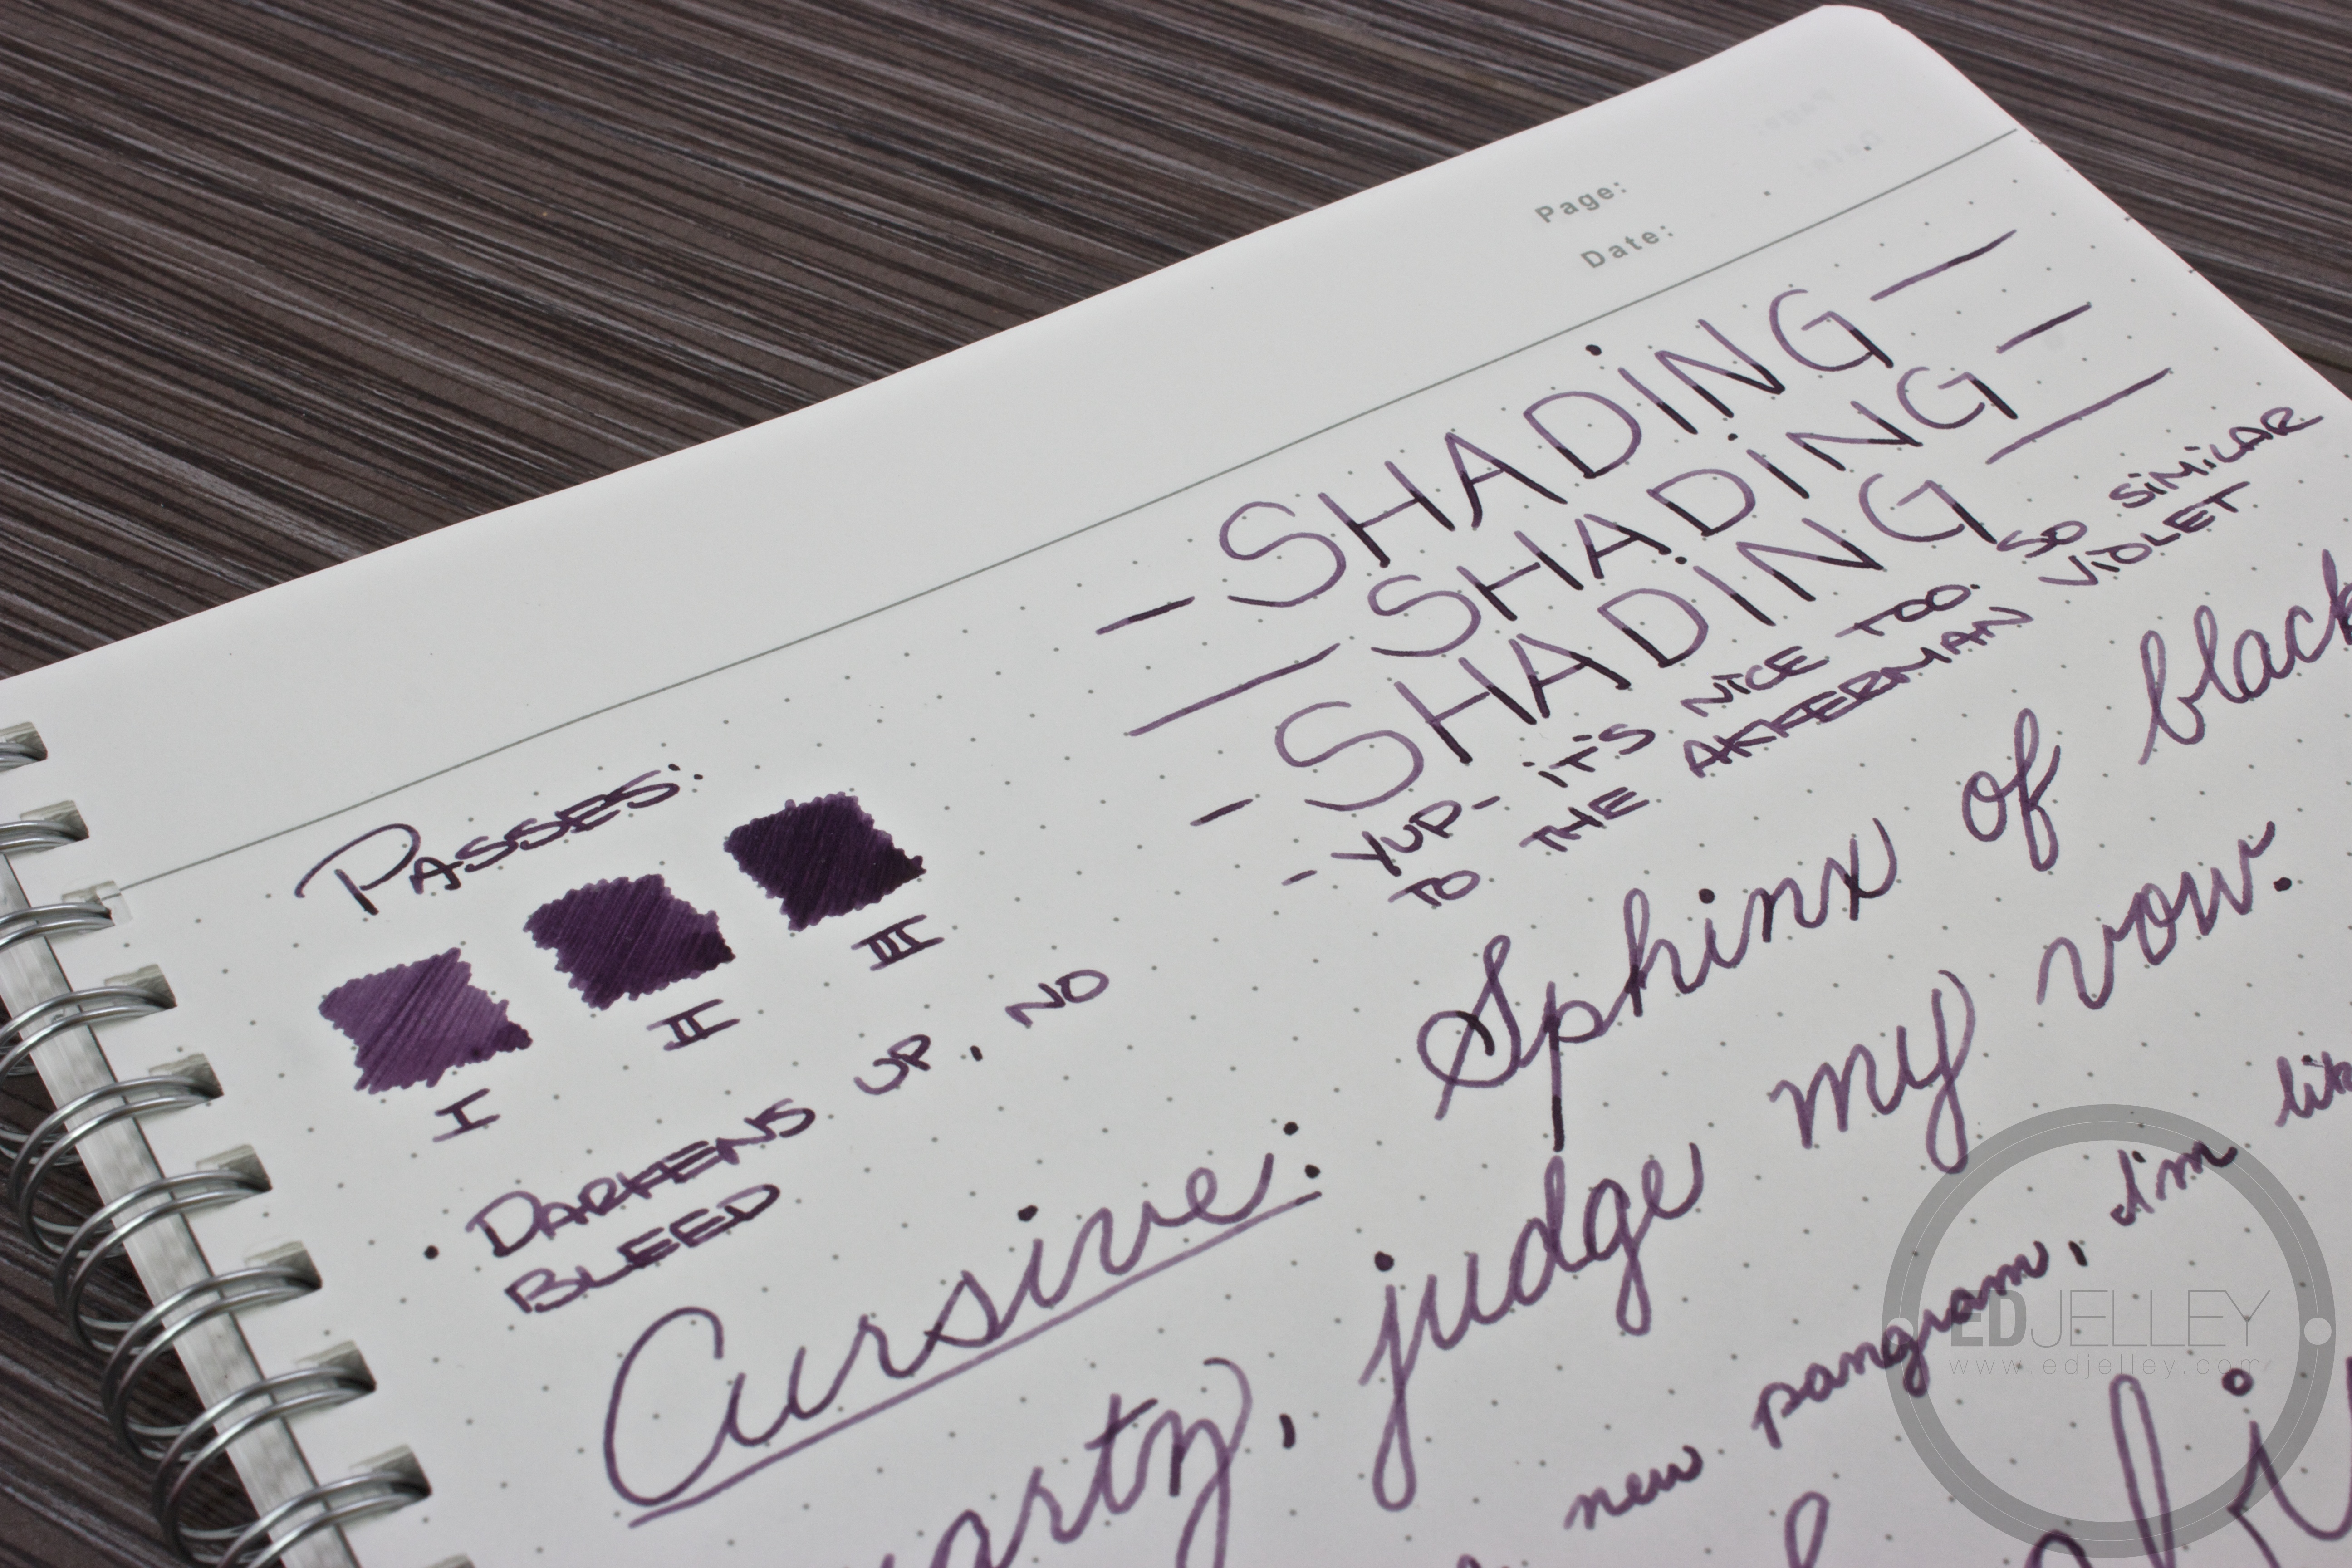 Page:
Date:
- SHADING -
- SHADING -
- SHADING -
- YUP- IT'S NICE TOO. SO SIMILAR
TO THE AKKERMAN VIOLET
PASSES:
I II III
• DARKENS UP, NO
BLEED
Cursive: Sphinx of black
, judge my vow.
new pangram, I'm
EDJELLEY
www.edjelley.com